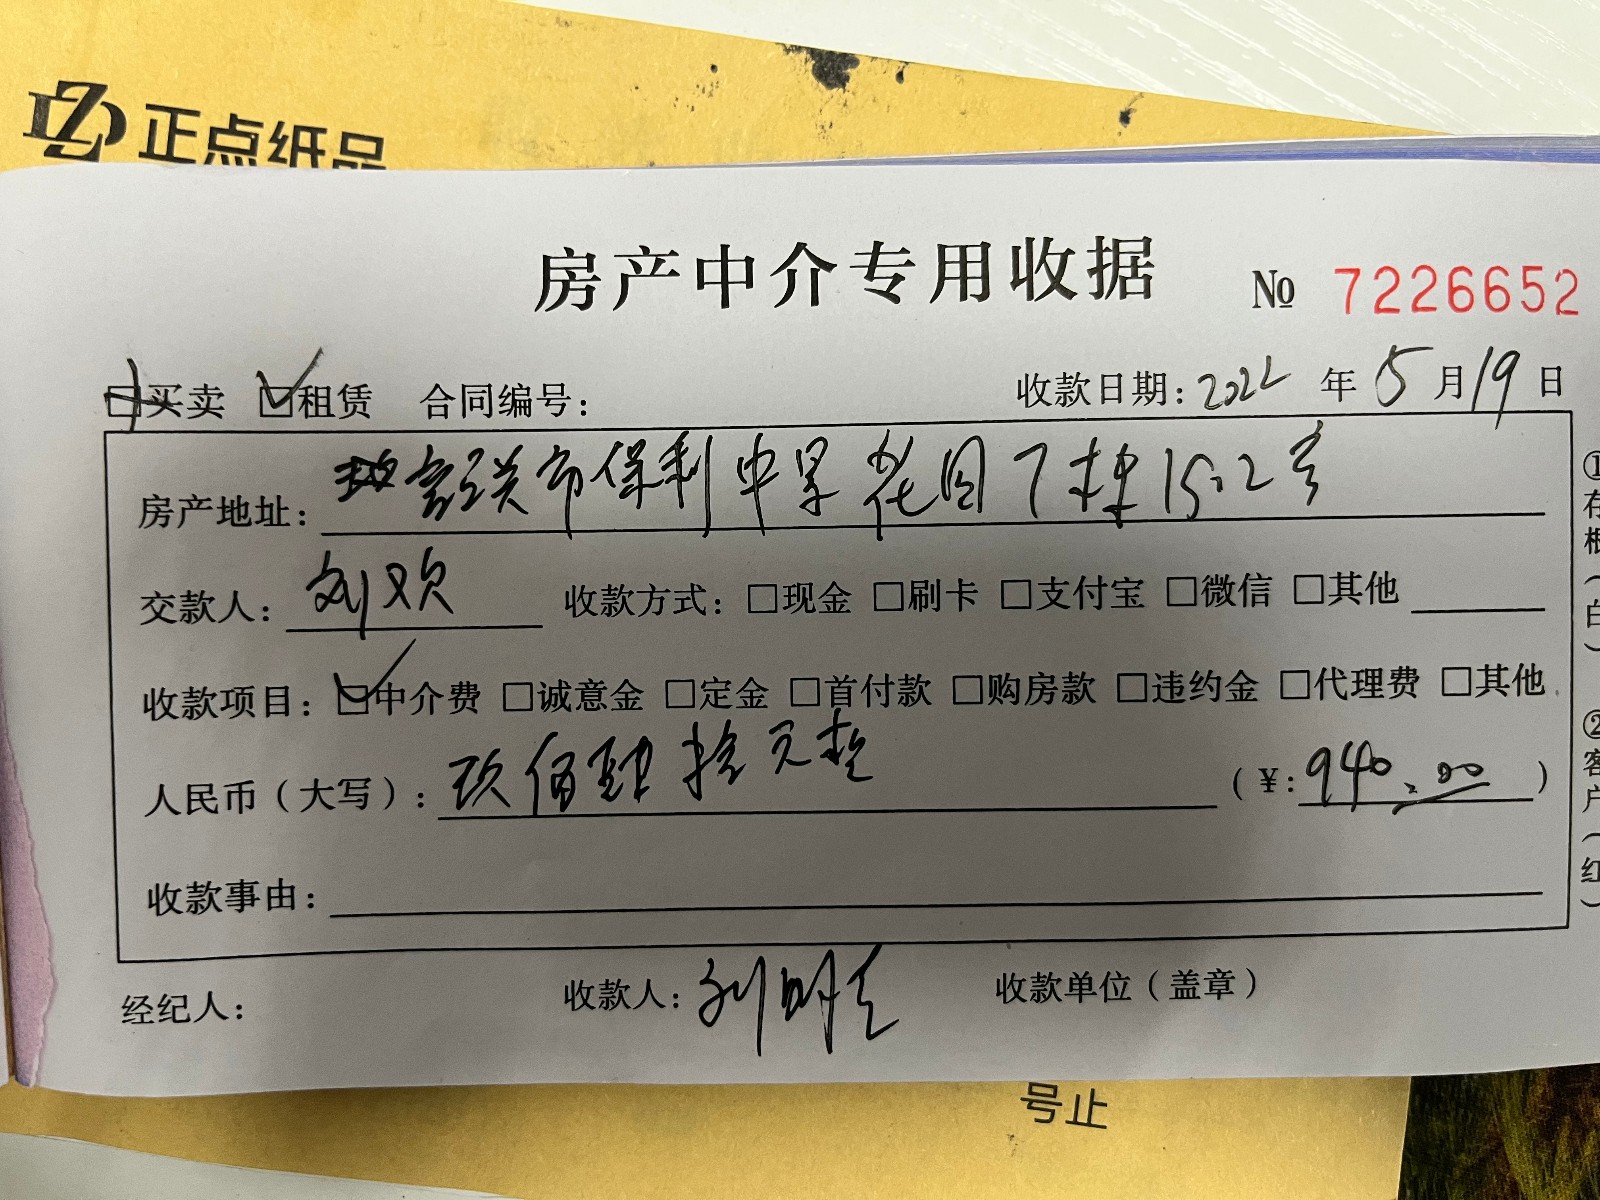 正点纸品
房产中介专用收据 № 7226652
买卖 租赁 合同编号: 收款日期: 2022 年 5 月 19 日
房产地址: 市保利中 花园7栋1502号
交款人: 刘欢 收款方式: 现金 刷卡 支付宝 微信 其他
收款项目: 中介费 诚意金 定金 首付款 购房款 违约金 代理费 其他
人民币(大写): 玖佰肆拾元整 (¥: 940.00)
收款事由:
经纪人: 收款人: 刘明 收款单位(盖章)
①存根(白)
②客户(红)
号止